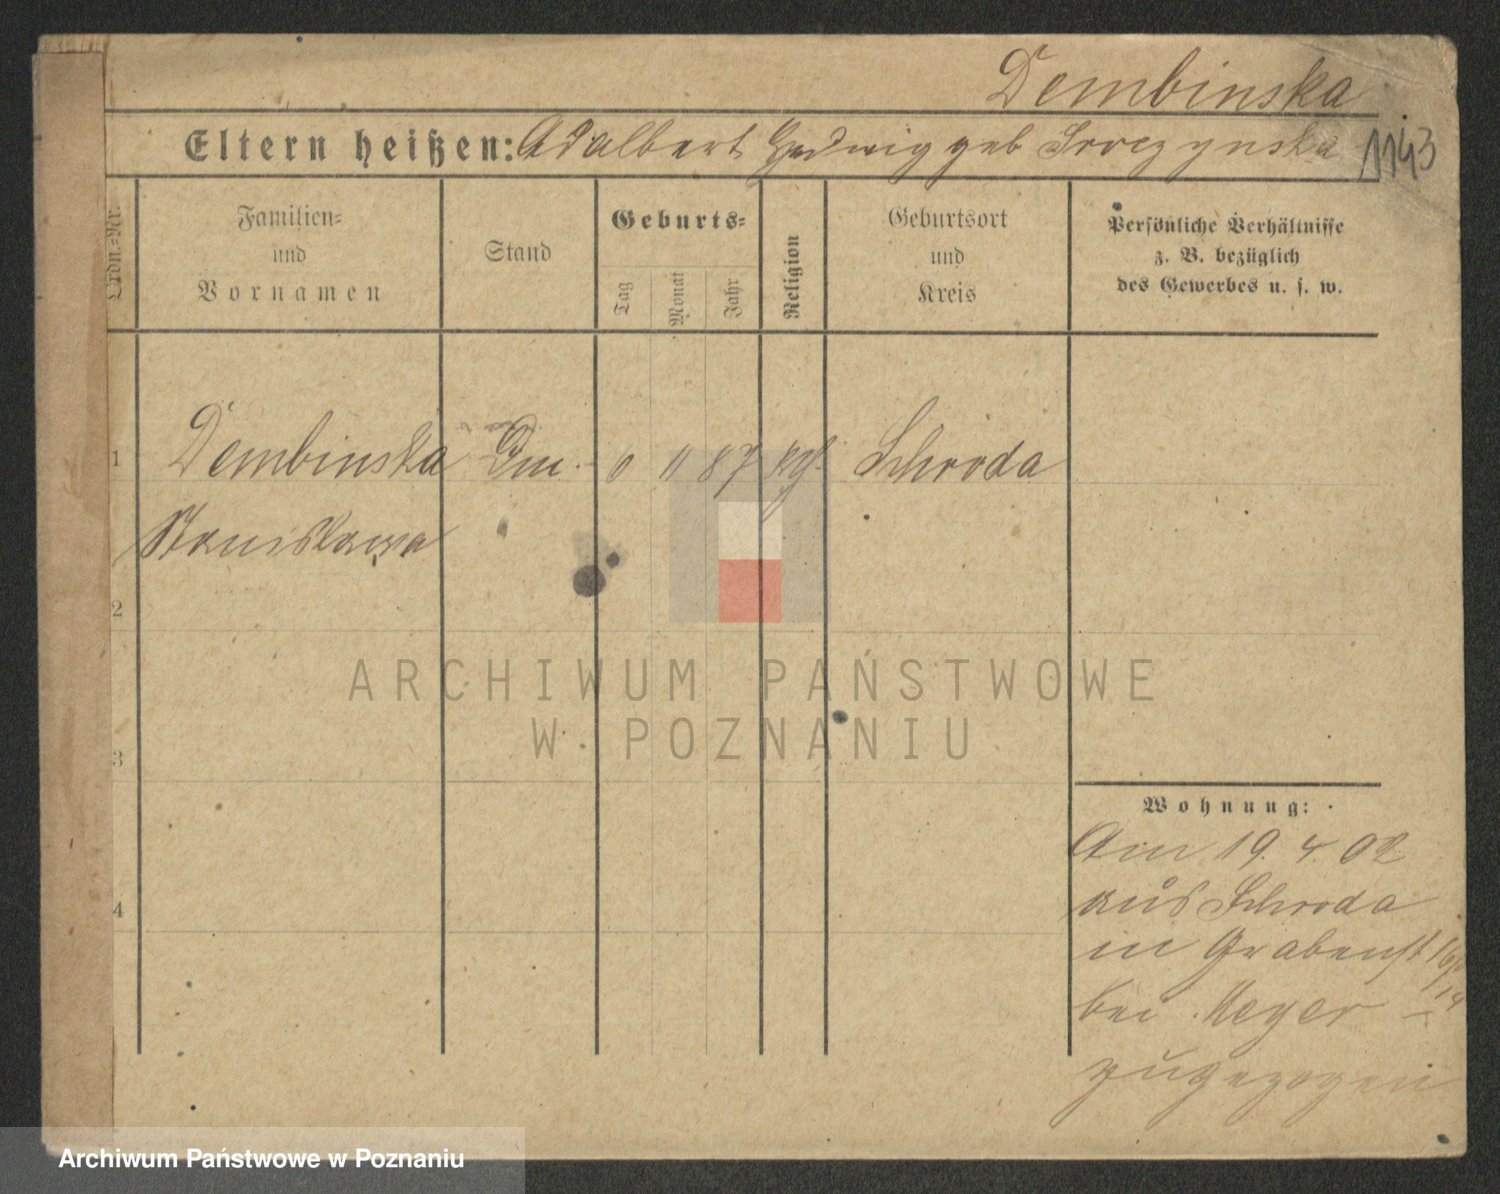 Dembinska
Eltern heißen: Adalbert Hedwig geb Sroczynska
1143
Ordn.=Nr.
Familien=
und
Vornamen
Stand
Geburts=
Tag
Monat
Jahr
Religion
Geburtsort
und
Kreis
Persönliche Verhältnisse
z. B. bezüglich
des Gewerbes u. s. w.
1
Dembinska
6 11 87 kth Schroda
Stanislawa
2
ARCHIWUM PAŃSTWOWE
W POZNANIU
3
Wohnung:
Am 19. 4. 02
aus Schroda
4
in Grabenst
bei Meyer
zugezogen
Archiwum Państwowe w Poznaniu